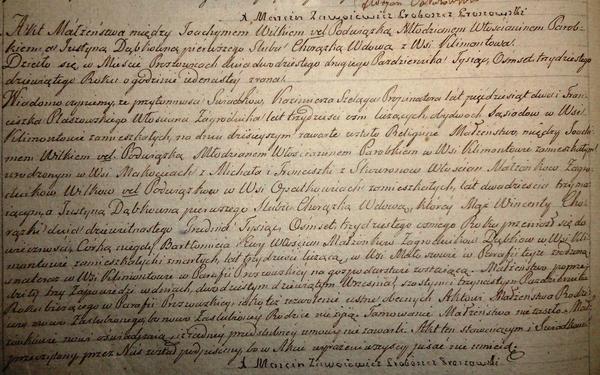 X Marcin Zawoiewicz Proboszcz Proszowski
Akt Małżeństwa między Joachymem Wilkiem vel Podwiązką Młodzianem Włościaninem Parob-
kiem, a Justyną Dąbkówną pierwszego Slubu Chorązką Wdową z Wsi Klimontowa.
Działo się w Mieście Proszowicach dnia dwudziestego drugiego Pazdziernika Tysiąc Osmset trzydziestego
dziewiątego Roku o godzinie iedenastey zrana.
Wiadomo czyniemy, ze w przytomności Swiadków, Kazimierza Szeląga Propinatora lat pięćdziesiąt dwa i Fran-
ciszka Płaszowskiego Włoscianina Zagrodnika lat trzydzieści osm liczących, obydwóch Sąsiadów w Wsi
Klimontowie zamieszkałych, na dniu dzisieyszym zawarte zostało Religiyne Małżeństwo, między Joachi-
mem Wilkiem vel Podwiązką Młodzianem Włościaninem Parobkiem w Wsi Klimontowie zamieszkałym
urodzonym w Wsi z Michała i Franciszki z Skowronów Włościan Małżonków Zagro-
dników Wilków vel Podwiązków w Wsi Opatkowicach zamieszkałych, lat dwadzieścia trzy ma-
iącym, a Justyną Dąbkówną pierwszego Slubu Chorązką Wdową, którey Mąż Wincenty Cho-
rązki dnia dziewiętnastego Grudnia Tysiąc Osmset trzydziestego osmego Roku przeniosł się do
wieczności, Córką niegdy Bartłomieia i Ewy Włościan Małżonków Zagrodników Dąbków w Wsi Kli-
montowie zamieszkałych zmarłych, lat trzydzieści liczącą, w Wsi w Parafii teyże rodzoną
a teraz w Wsi Klimontowie w Parafii Proszowskiey na gospodarstwie zostaiącą. Małżeństwo poprze-
dziły trzy Zapowiedzi w dniach, dwudziestym dziewiątym Wrzesnia, szóstym i trzynastym Pazdziernika
Roku bieżącego w Parafii Proszowskiey, iakoteż zezwolenie ustne obecnych Aktowi Małżeństwa Rodzi-
ców nowo Zaslubionego, bo nowo Zaslubioney Rodzice nie żyią. Tamowanie Małżeństwa nie zaszło. Mał-
żonkowie nowi oswiadczaią, iż żadney przedslubney umowy nie zawarli. Akt ten stawaiącym i Swiadkom
przeczytany, przez Nas został podpisany, bo w Akcie wyrażeni wszyscy pisać nie umieią.
X Marcin Zawoiewicz Proboszcz Proszowski